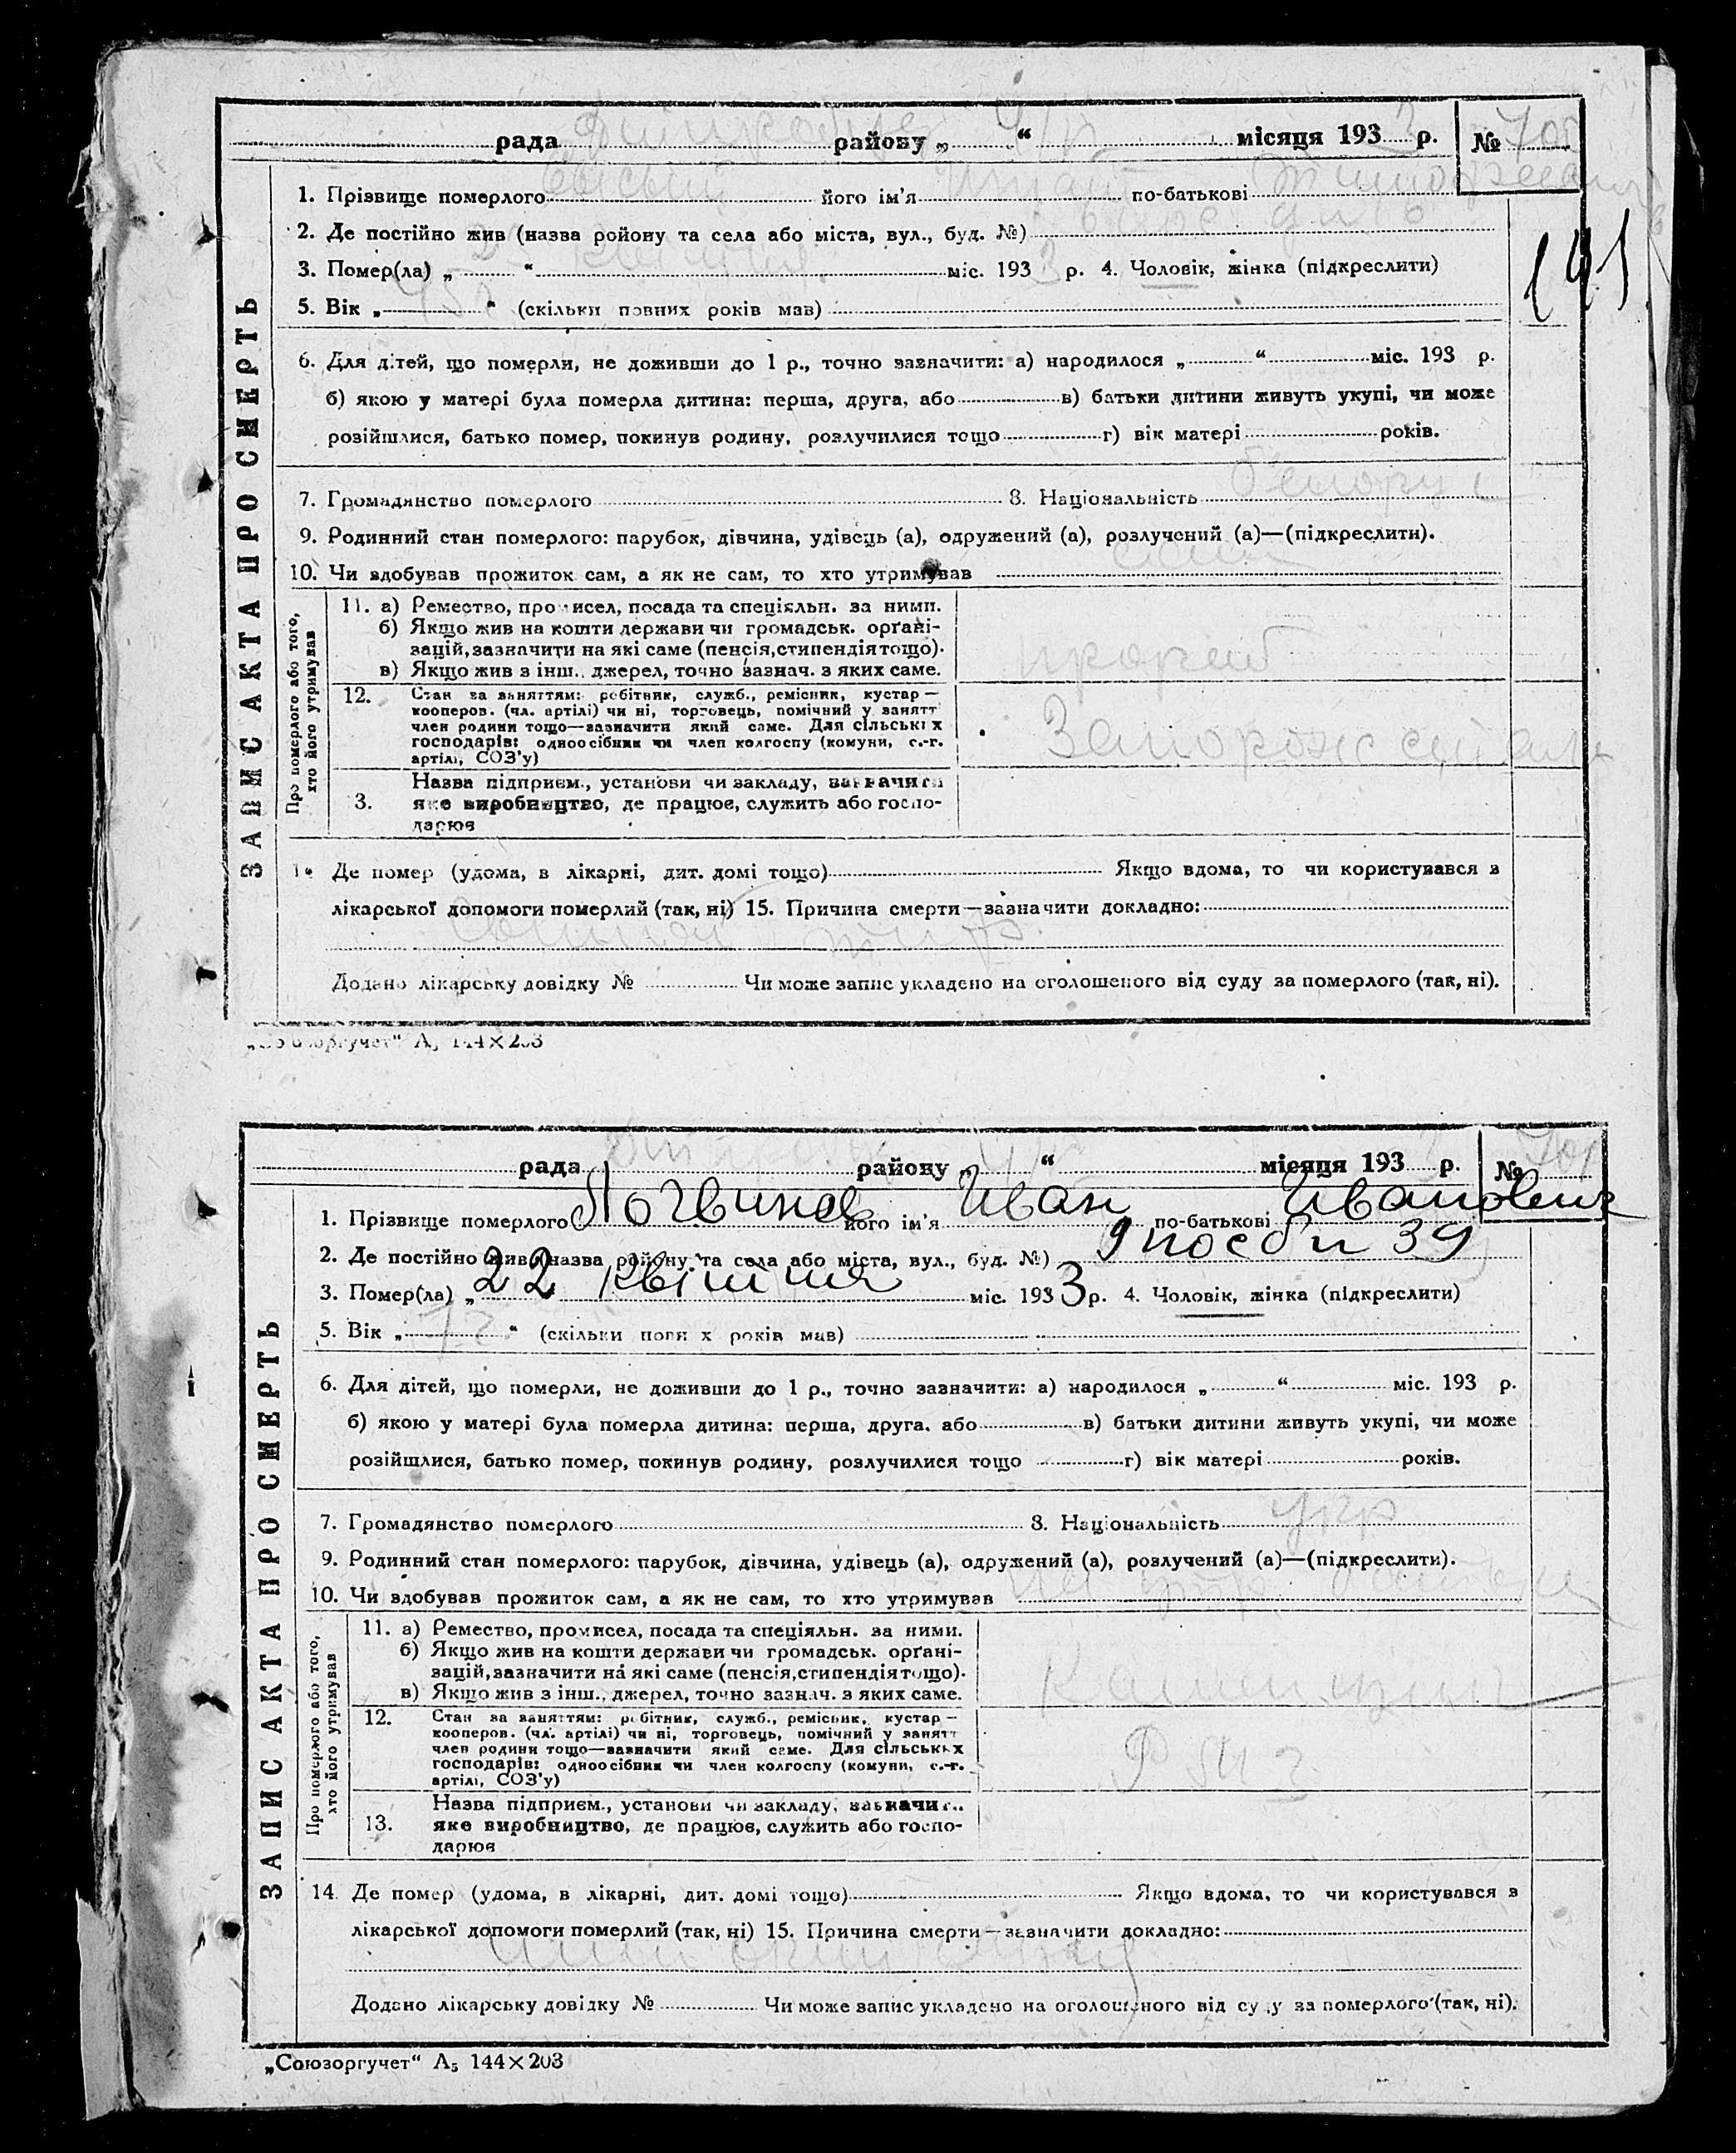 ЗАПИС АКТА ПРО СМЕРТЬ
рада району „ “ місяця 193 3 р. № 700
1. Прізвище померлого його ім’я по-батькові
2. Де постійно жив (назва ройону та села або міста, вул., буд. №)
3. Помер(ла) „ “ квітня міс. 193 3 р. 4. Чоловік, жінка (підкреслити)
5. Вік „ 45 “ (скільки повних років мав)
141
6. Для дітей, що померли, не доживши до 1 р., точно зазначити: а) народилося „ “ міс. 193 р.
б) якою у матері була померла дитина: перша, друга, або в) батьки дитини живуть укупі, чи може
розійшлися, батько помер, покинув родину, розлучилися тощо г) вік матері років.
7. Громадянство померлого 8. Національність белорус
9. Родинний стан померлого: парубок, дівчина, удівець (а), одружений (а), розлучений (а)—(підкреслити).
10. Чи здобував прожиток сам, а як не сам, то хто утримував сам
Про померлого або того, хто його утримував
11. а) Ремество, промисел, посада та спеціяльн. за ними.
б) Якщо жив на кошти держави чи громадськ. орґані-
зацій, зазначити на які саме (пенсія, стипендія тощо).
в) Якщо жив з інш. джерел, точно зазнач. з яких саме.
12. Стан за заняттям: робітник, служб., ремісник, кустар —
кооперов. (чл. артілі) чи ні, торговець, помічний у занятт
член родини тощо—зазначити який саме. Для сільських
господарів: одноосібник чи член колгоспу (комуни, с.-г.
артілі, СОЗ’у)
3. Назва підприєм., установи чи закладу, зазначити
яке виробництво, де працює, служить або госпо-
дарює
Де помер (удома, в лікарні, дит. домі тощо) Якщо вдома, то чи користувався з
лікарської допомоги померлий (так, ні) 15. Причина смерти—зазначити докладно:
тиф
Додано лікарську довідку № Чи може запис укладено на оголошеного від суду за померлого (так, ні).
„Союзоргучет“ А5 144×203
ЗАПИС АКТА ПРО СМЕРТЬ
рада району „ “ місяця 193 р. № 701
1. Прізвище померлого Логвинов його ім’я Иван по-батькові Иванович
2. Де постійно жив (назва ройону та села або міста, вул., буд. №) 9 пос б н 39
3. Помер(ла) „ 22 квітня міс. 193 3 р. 4. Чоловік, жінка (підкреслити)
5. Вік „ “ (скільки повн х років мав)
6. Для дітей, що померли, не доживши до 1 р., точно зазначити: а) народилося „ “ міс. 193 р.
б) якою у матері була померла дитина: перша, друга, або в) батьки дитини живуть укупі, чи може
розійшлися, батько помер, покинув родину, розлучилися тощо г) вік матері років.
7. Громадянство померлого 8. Національність укр
9. Родинний стан померлого: парубок, дівчина, удівець (а), одружений (а), розлучений (а)—(підкреслити).
10. Чи здобував прожиток сам, а як не сам, то хто утримував
Про померлого або того, хто його утримував
11. а) Ремество, промисел, посада та спеціяльн. за ними.
б) Якщо жив на кошти держави чи громадськ. орґані-
зацій, зазначити на які саме (пенсія, стипендія тощо).
в) Якщо жив з інш. джерел, точно зазнач. з яких саме.
12. Стан за заняттям: робітник, служб., ремісник, кустар —
кооперов. (чл. артілі) чи ні, торговець, помічний у занятт
член родини тощо—зазначити який саме. Для сільських
господарів: одноосібник чи член колгоспу (комуни, с.-г.
артілі, СОЗ’у)
13. Назва підприєм., установи чи закладу, зазначити
яке виробництво, де працює, служить або госпо-
дарює
14. Де помер (удома, в лікарні, дит. домі тощо) Якщо вдома, то чи користувався з
лікарської допомоги померлий (так, ні) 15. Причина смерти—зазначити докладно:
Додано лікарську довідку № Чи може запис укладено на оголошеного від суду за померлого (так, ні).
„Союзоргучет“ А5 144×203